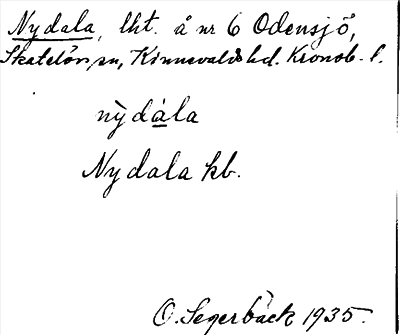 Nydala, lht. å nr 6 Odensjö,
Skatelövs sn, Kinnevalds hd. Kronob. l.
nỳdála
Nydala kb.
O. Segerbäck 1935.